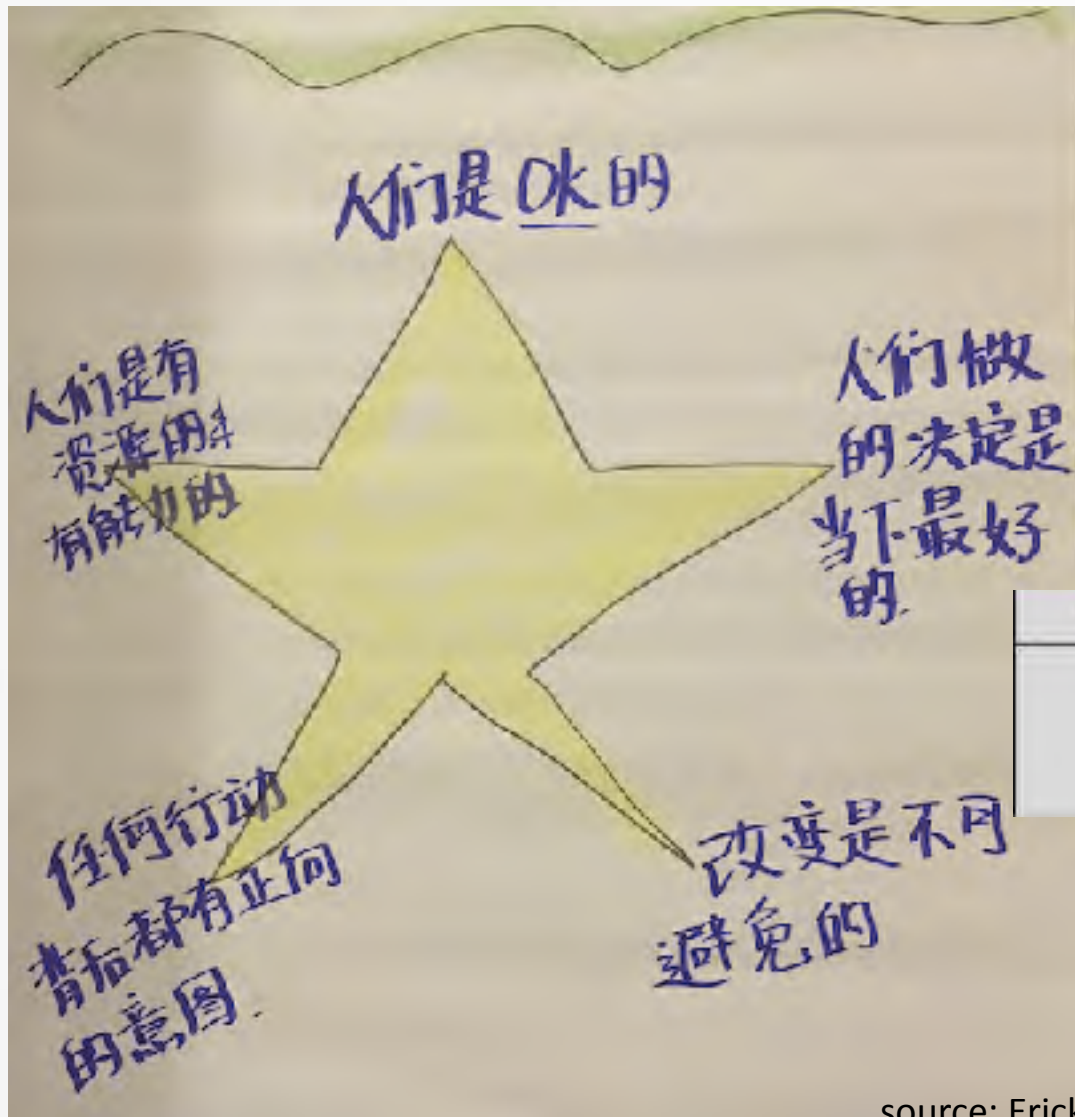 人们是OK的
人们是有
资源的&
有能力的
人们做
的决定是
当下最好
的.
任何行动
背后都有正向
的意图.
改变是不可
避免的
source: